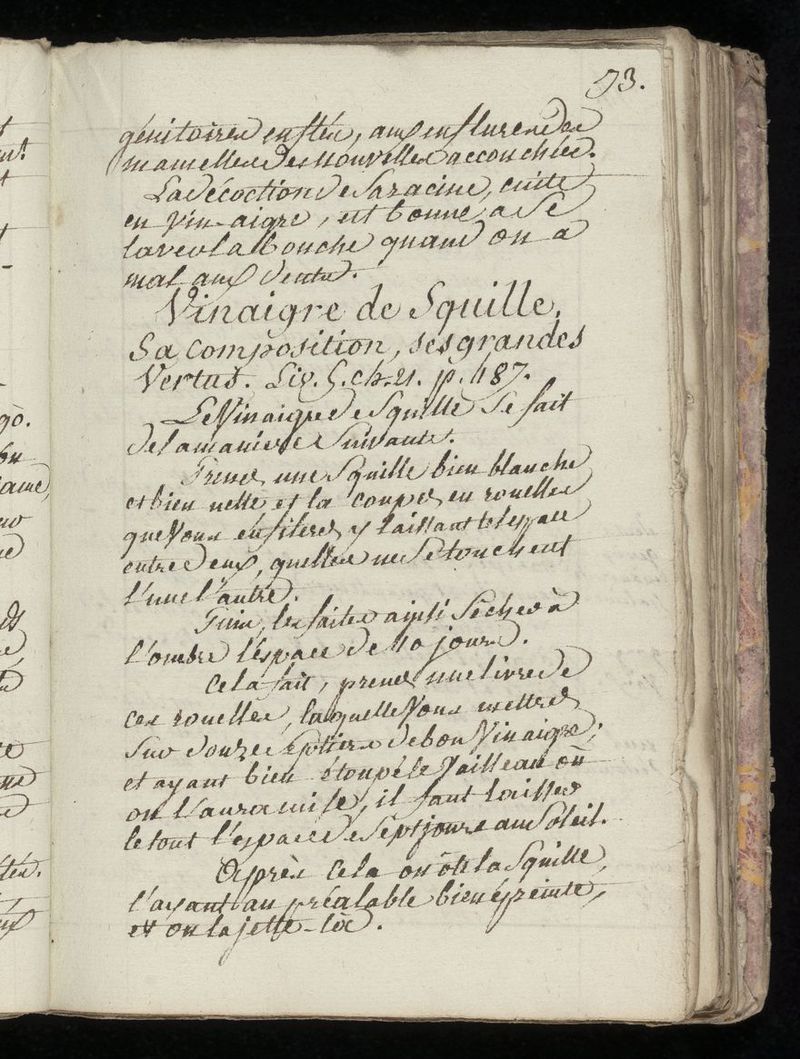 73.
génitoires enflés, aux enflures des
mamelles des nouvelles accouchées.
La décoction de sa racine, cuite
en vin-aigre, est bonne a se
laver la bouche quand on a
mal aux dents.
Vinaigre de Squille.
Sa composition, ses grandes
Vertus. Liv. 5. ch. 21. p. 187.
Le Vinaigre de Squille se fait
de la maniere suivante.
Prenés une Squille bien blanche
et bien nette et la coupés en rouelles
que Vous enfilerés y laissant tel espace
entre deux, quelles ne se touchent
l'une l'autre.
Puis, les faites ainsi secher à
l'ombre l'espace de 40 jours.
Cela fait, prenés une livre de
ces rouelles, laquelle Vous mettrés
sur douze Cotiers de bon Vinaigre;
et ayant bien étoupé le Vaisseau où
on l'aura mise, il faut laisser
le tout l'espace de Sept jours au Soleil.
Après cela on ôte la Squille,
l'ayant au préalable bien épreinte,
et on la jette-là.